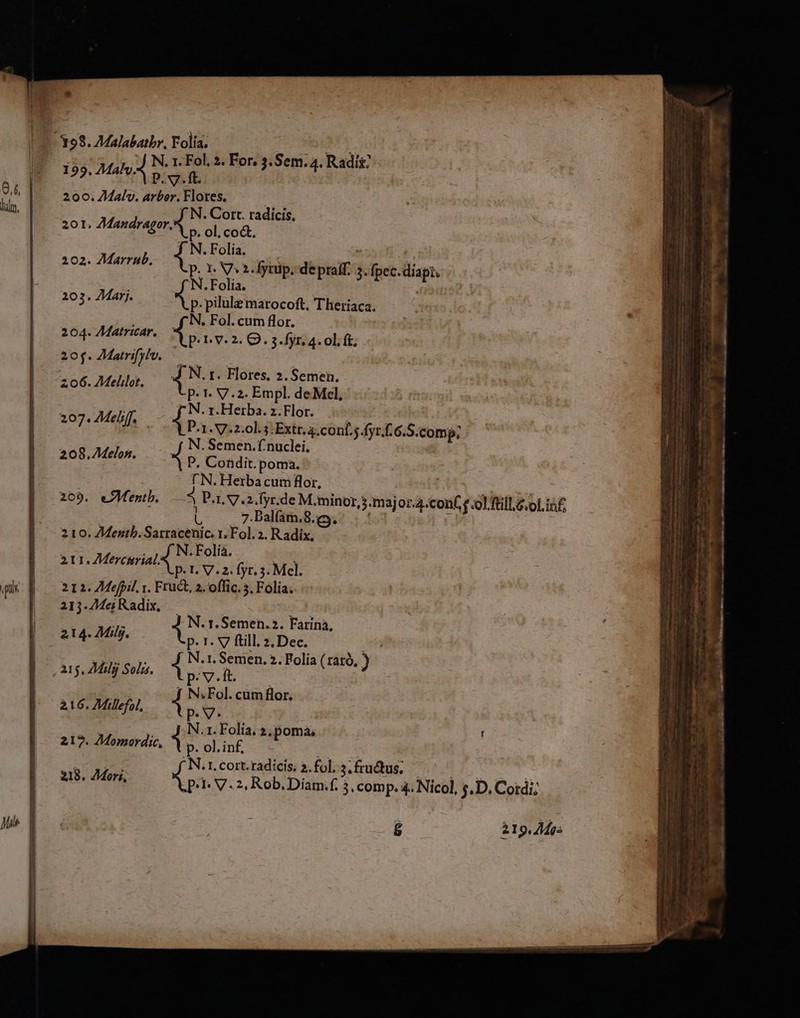 198. Malabathr. Folia.
199. Malv. { N. 1. Fol. 2. For. 3. Sem. 4. Radix.
p. 🜄. ſt.
200. Malv. arbor. Flores.
201. Mandragor. { N. Cort. radicis.
p. ol. coct.
202. Marrub. { N. Folia.
p. 1. 🜄. 2. ſyrup. de praſſ. 3. ſpec. diapr.
203. Marj. { N. Folia.
p. pilulæ marocoſt. Theriaca.
204. Matricar. { N. Fol. cum flor.
p. 1. v. 2. 🜔. 3. ſyr. 4. ol. ſt.
205. Matriſylv.
206. Melilot. { N. 1. Flores. 2. Semen.
p. 1. 🜄. 2. Empl. de Mel.
207. Meliſſ. { N. 1. Herba. 2. Flor.
P. 1. 🜄. 2. ol. 3. Extr. 4. conſ. 5. ſyr. ſ. 6. S. comp.
208. Melon. { N. Semen. ſ. nuclei.
P. Condit. poma.
209. Menth. { N. Herba cum flor.
P. 1. 🜄. 2. ſyr. de M. minor, 3. major. 4. conſ. 5. ol. ſtill. 6. ol. inf.
7. Balſam. 8.
210. Menth. Sarracenic. 1. Fol. 2. Radix.
211. Mercurial. { N. Folia.
p. 1. 🜄. 2. ſyr. 3. Mel.
212. Meſpil. 1. Fruct. 2. oſſic. 3. Folia.
213. Mei Radix.
214. Milij. { N. 1. Semen. 2. Farina.
p. 1. 🜄 ſtill. 2. Dec.
215. Milij Solis. { N. 1. Semen. 2. Folia (rarò.)
p. 🜄. ſt.
216. Millefol. { N. Fol. cum flor.
p. 🜄.
217. Momordic. { N. 1. Folia. 2. poma.
p. ol. inf.
218. Mori. { N. 1. cort. radicis. 2. fol. 3. fructus.
p. 1. 🜄. 2. Rob. Diam. ſ. 3. comp. 4. Nicol. 5. D. Cordi.
g 219. Mos-